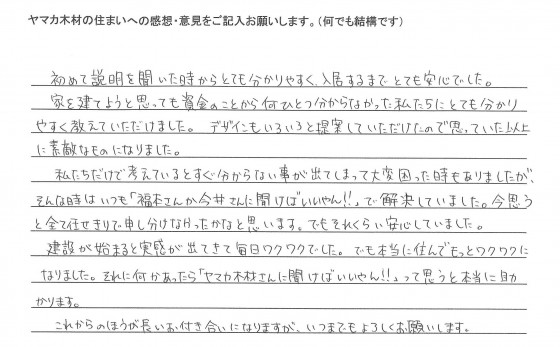 ヤマカ木材の住まいへの感想・意見をご記入お願いします。（何でも結構です）
初めて説明を聞いた時からとても分かりやすく、入居するまでとても安心でした。
家を建てようと思っても資金のことから何ひとつ分からなかった私たちにとても分かり
やすく教えていただけました。デザインもいろいろと提案していただけたので思っていた以上
に素敵なものになりました。
私たちだけで考えているとすぐ分からない事が出てしまって大変困った時もありましたが、
そんな時はいつも「福本さんか今井さんに聞けばいいやん!!」で解決していました。今思う
と全て任せきりで申し分けなかったかなと思います。でもそれくらい安心していました。
建設が始まると実感が出てきて毎日ワクワクでした。でも本当に住んでもっとワクワクに
なりました。それに何かあったら「ヤマカ木材さんに聞けばいいやん!!」って思うと本当に助
かります。
これからのほうが長いお付き合いになりますが、いつまでもよろしくお願いします。